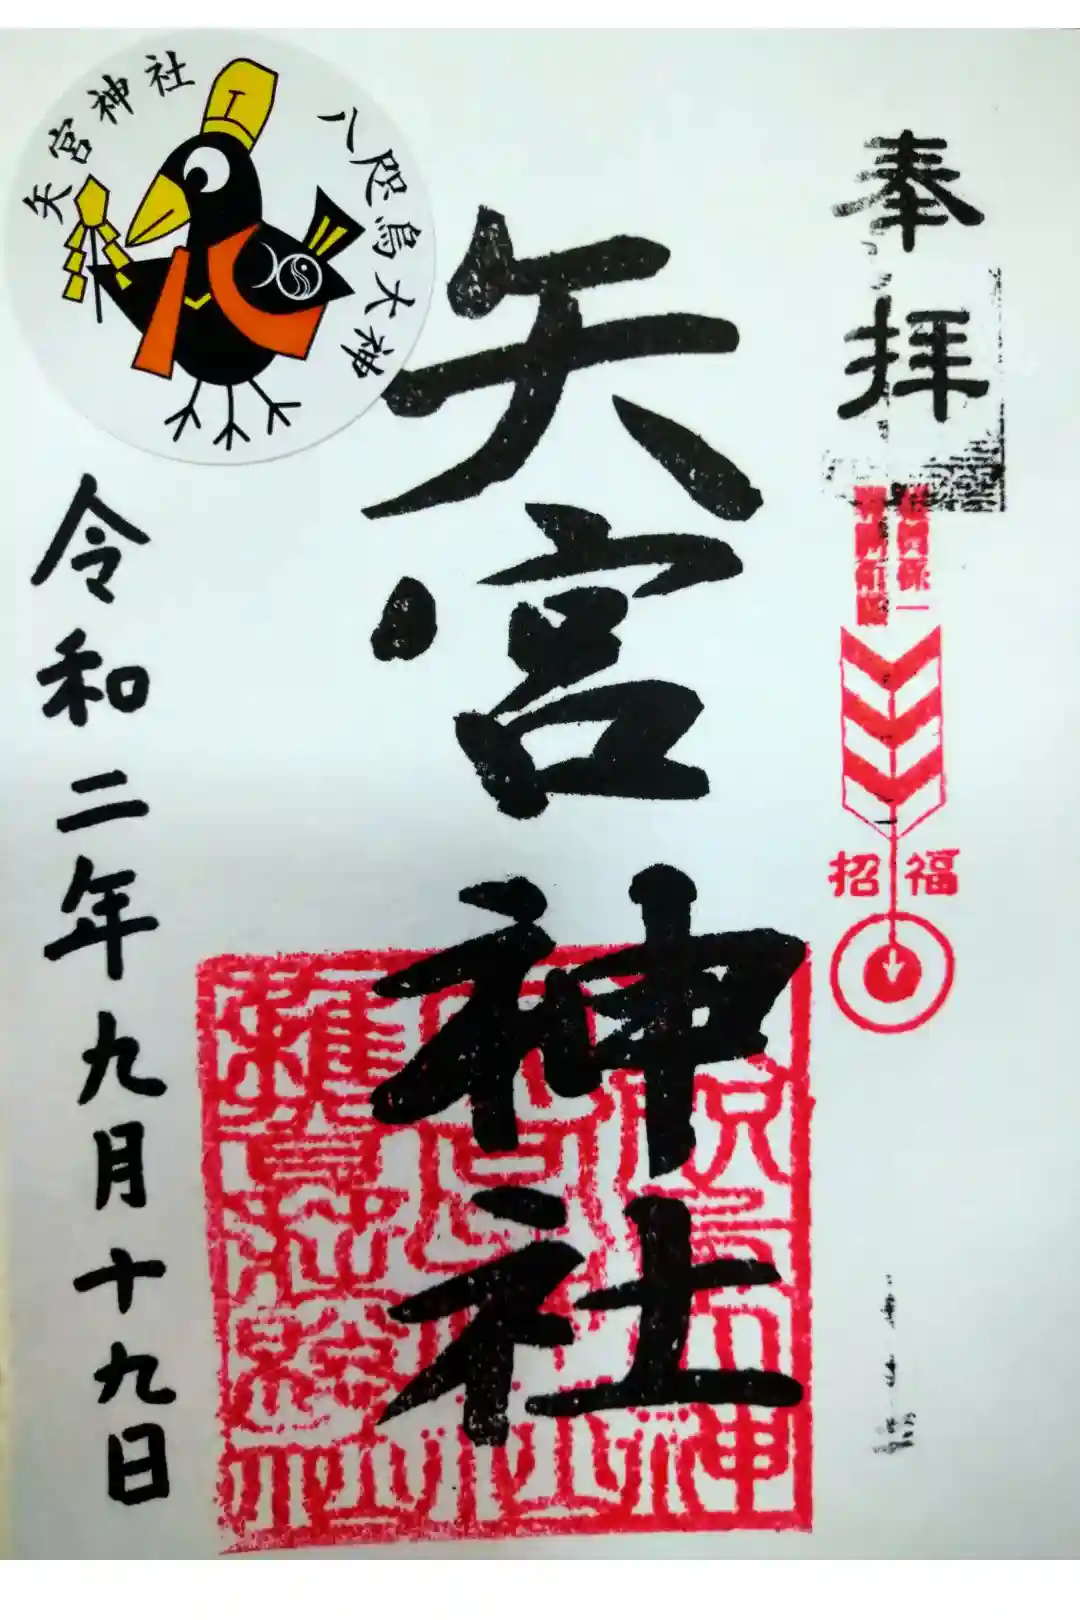 奉拝
招福
矢宮神社
矢宮神社
八咫烏大神
令和二年九月十九日